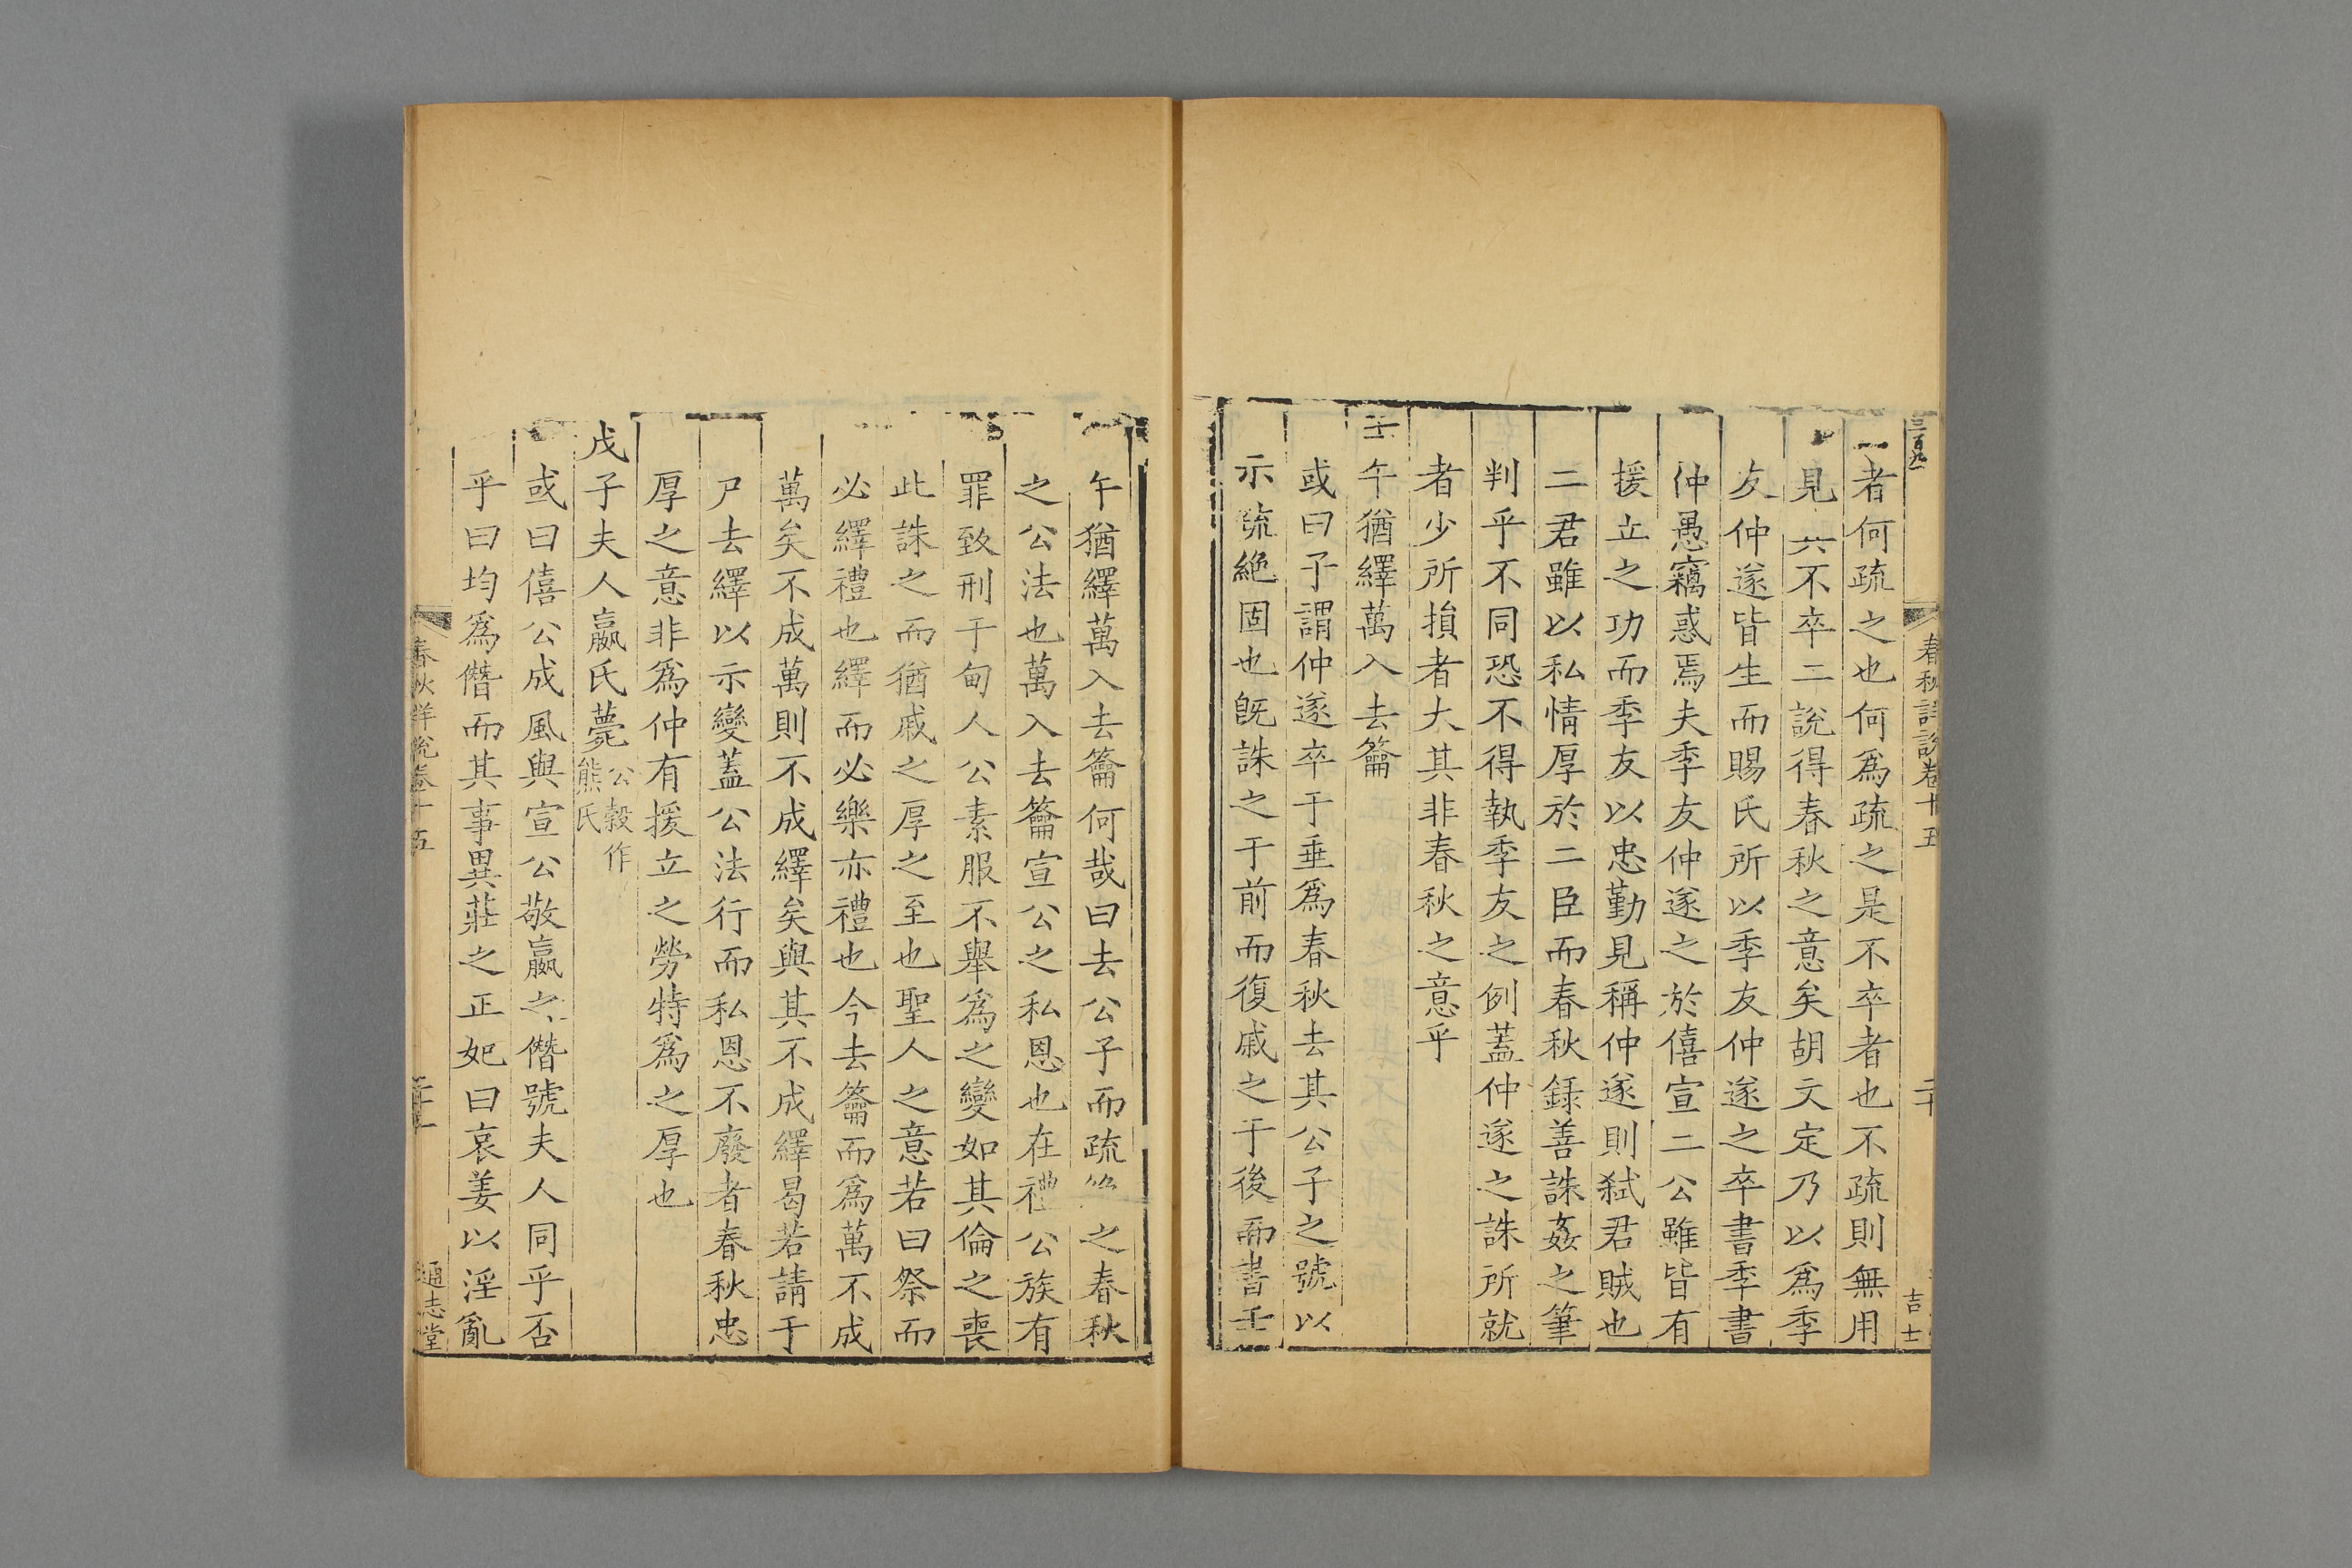 三百九
春秋詳說卷十五
二十
吉士
者何疏之也何為疏之是不卒者也不疏則無用
見其不卒二說得春秋之意矣胡文定乃以為季
友仲遂皆生而賜氏所以季友仲遂之卒書季書
仲愚竊惑焉夫季友仲遂之於僖宣二公雖皆有
援立之功而季友以忠勤見稱仲遂則弑君賊也
二君雖以私情厚於二臣而春秋錄善誅姦之筆
判乎不同恐不得執季友之例蓋仲遂之誅所就
者少所損者大其非春秋之意乎
壬午猶繹萬入去籥
或曰子謂仲遂卒于垂為春秋去其公子之號以
示疏絕固也旣誅之于前而復戚之于後而書壬
午猶繹萬入去籥何哉曰去公子而疏絕之春秋
之公法也萬入去籥宣公之私恩也在禮公族有
罪致刑于甸人公素服不舉為之變如其倫之喪
此誅之而猶戚之厚之至也聖人之意若曰祭而
必繹禮也繹而必樂亦禮也今去籥而為萬不成
萬矣不成萬則不成繹矣與其不成繹曷若請于
尸去繹以示變蓋公法行而私恩不廢者春秋忠
厚之意非為仲有援立之勞特為之厚也
戊子夫人嬴氏薨公穀作熊氏
或曰僖公成風與宣公敬嬴之僭號夫人同乎否
乎曰均為僭而其事異莊之正妃曰哀姜以淫亂
春秋詳說卷十五
二十一
通志堂